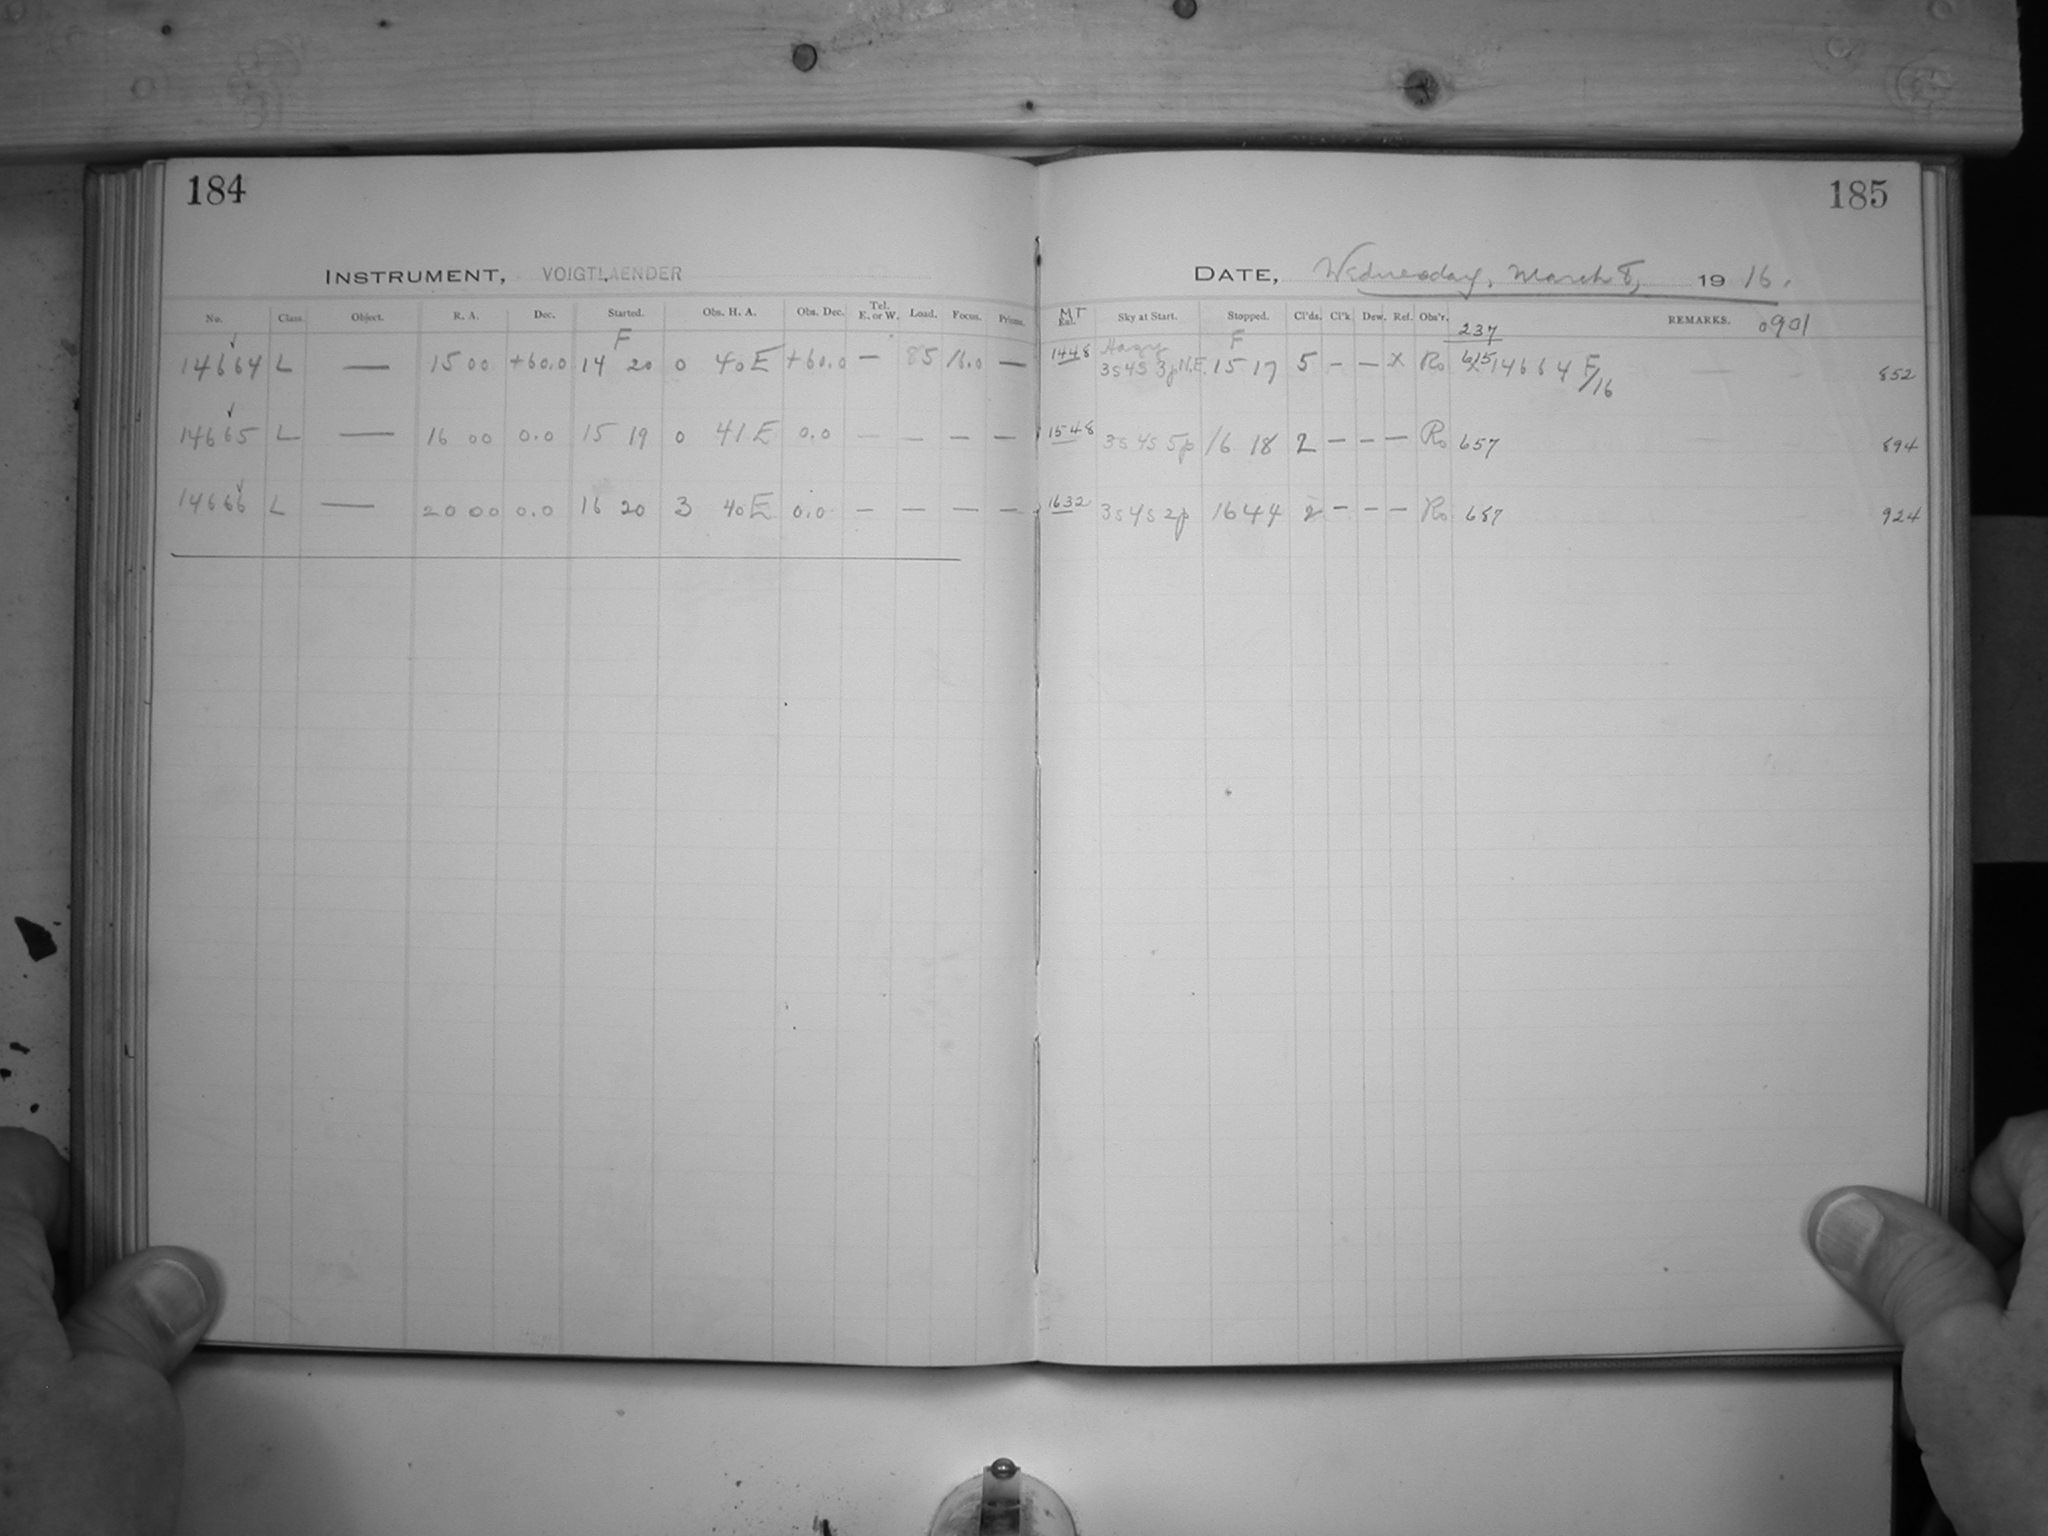 184
INSTRUMENT, VOIGTLAENDER
No. Class. Object. R. A. Dec. Started. Obs. H. A. Obs. Dec. Tel. E. or W. Load. Focus. Prisms.
F
14664 L — 15 00 +60.0 14 20 0 40 E +60.0 — 85 16.0 —
14665 L — 16 00 0.0 15 19 0 41 E 0.0 — — — —
14666 L — 20 00 0.0 16 20 3 40 E 0.0 — — — —
185
DATE, Wednesday, March 8, 19 16.
MT
Sky at Start. Stopped. Cl'ds. Cl'k. Dew. Ref. Obs'r. REMARKS. 0901
237
Hazy F
1448 3s 4s 3p N.E. 15 17 5 — — x Ro 14664 F/16 852
1548 3s 4s 5p 16 18 2 — — — Ro 657 894
1632 3s 4s 2p 16 44 2 — — — Ro 657 924